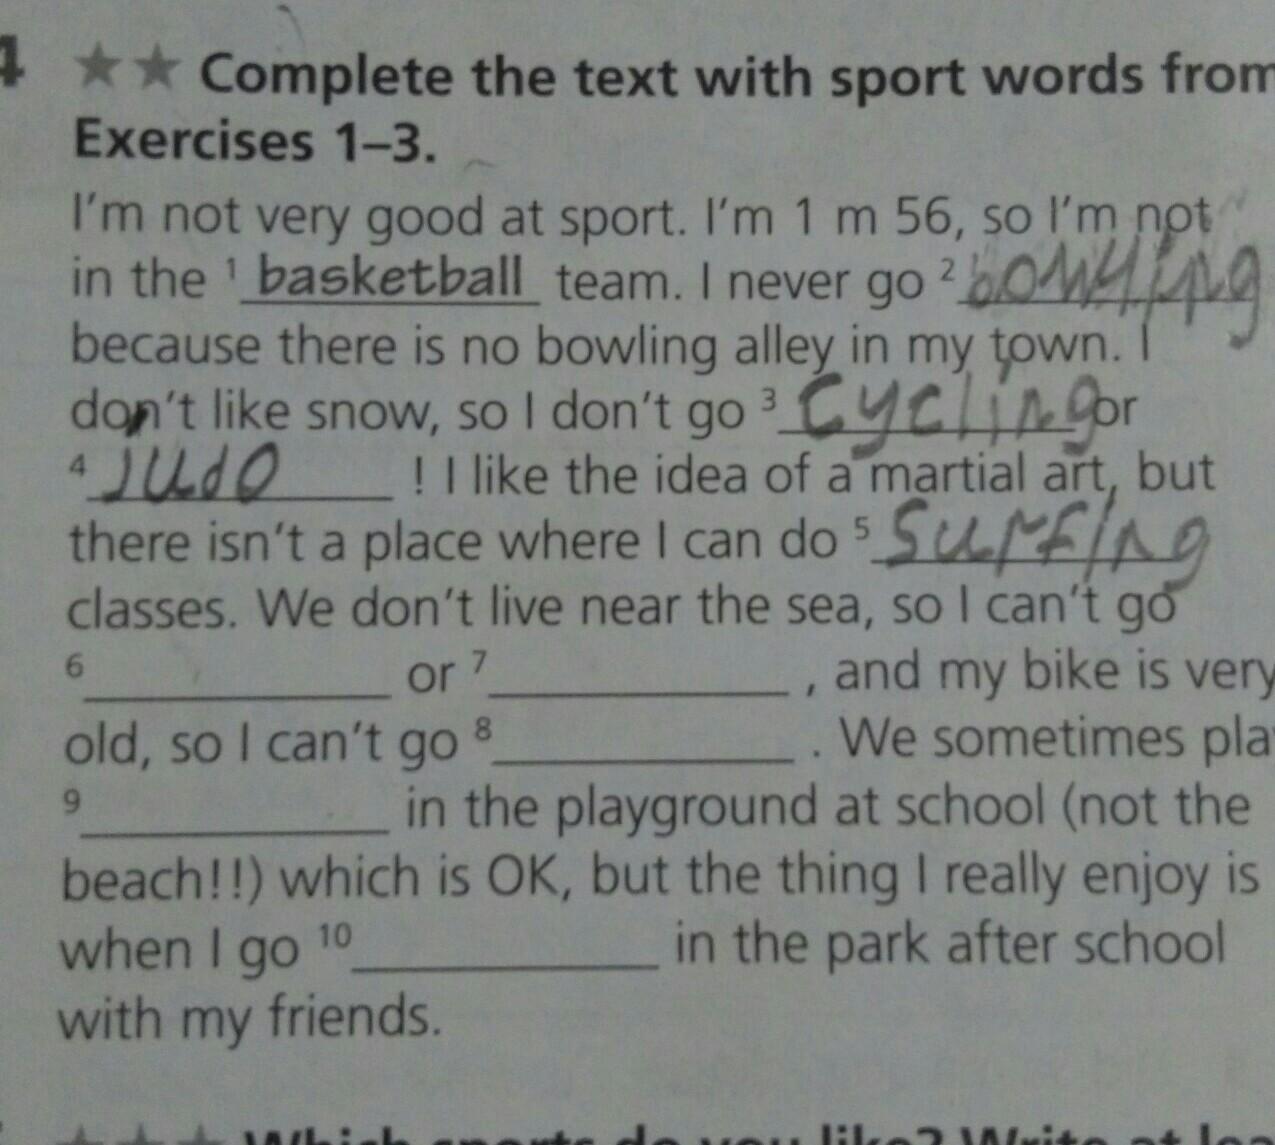 4 ★★ Complete the text with sport words from
Exercises 1–3.
I'm not very good at sport. I'm 1 m 56, so I'm not
in the ¹ basketball team. I never go ² bowling
because there is no bowling alley in my town. I
don't like snow, so I don't go ³ Cycling or
⁴ Judo ! I like the idea of a martial art, but
there isn't a place where I can do ⁵ Surfing
classes. We don't live near the sea, so I can't go
⁶ ____________ or ⁷ ____________ , and my bike is very
old, so I can't go ⁸ ____________ . We sometimes pla
⁹ ____________ in the playground at school (not the
beach!!) which is OK, but the thing I really enjoy is
when I go ¹⁰ ____________ in the park after school
with my friends.
★★★ Which sports do you like? Write at lea